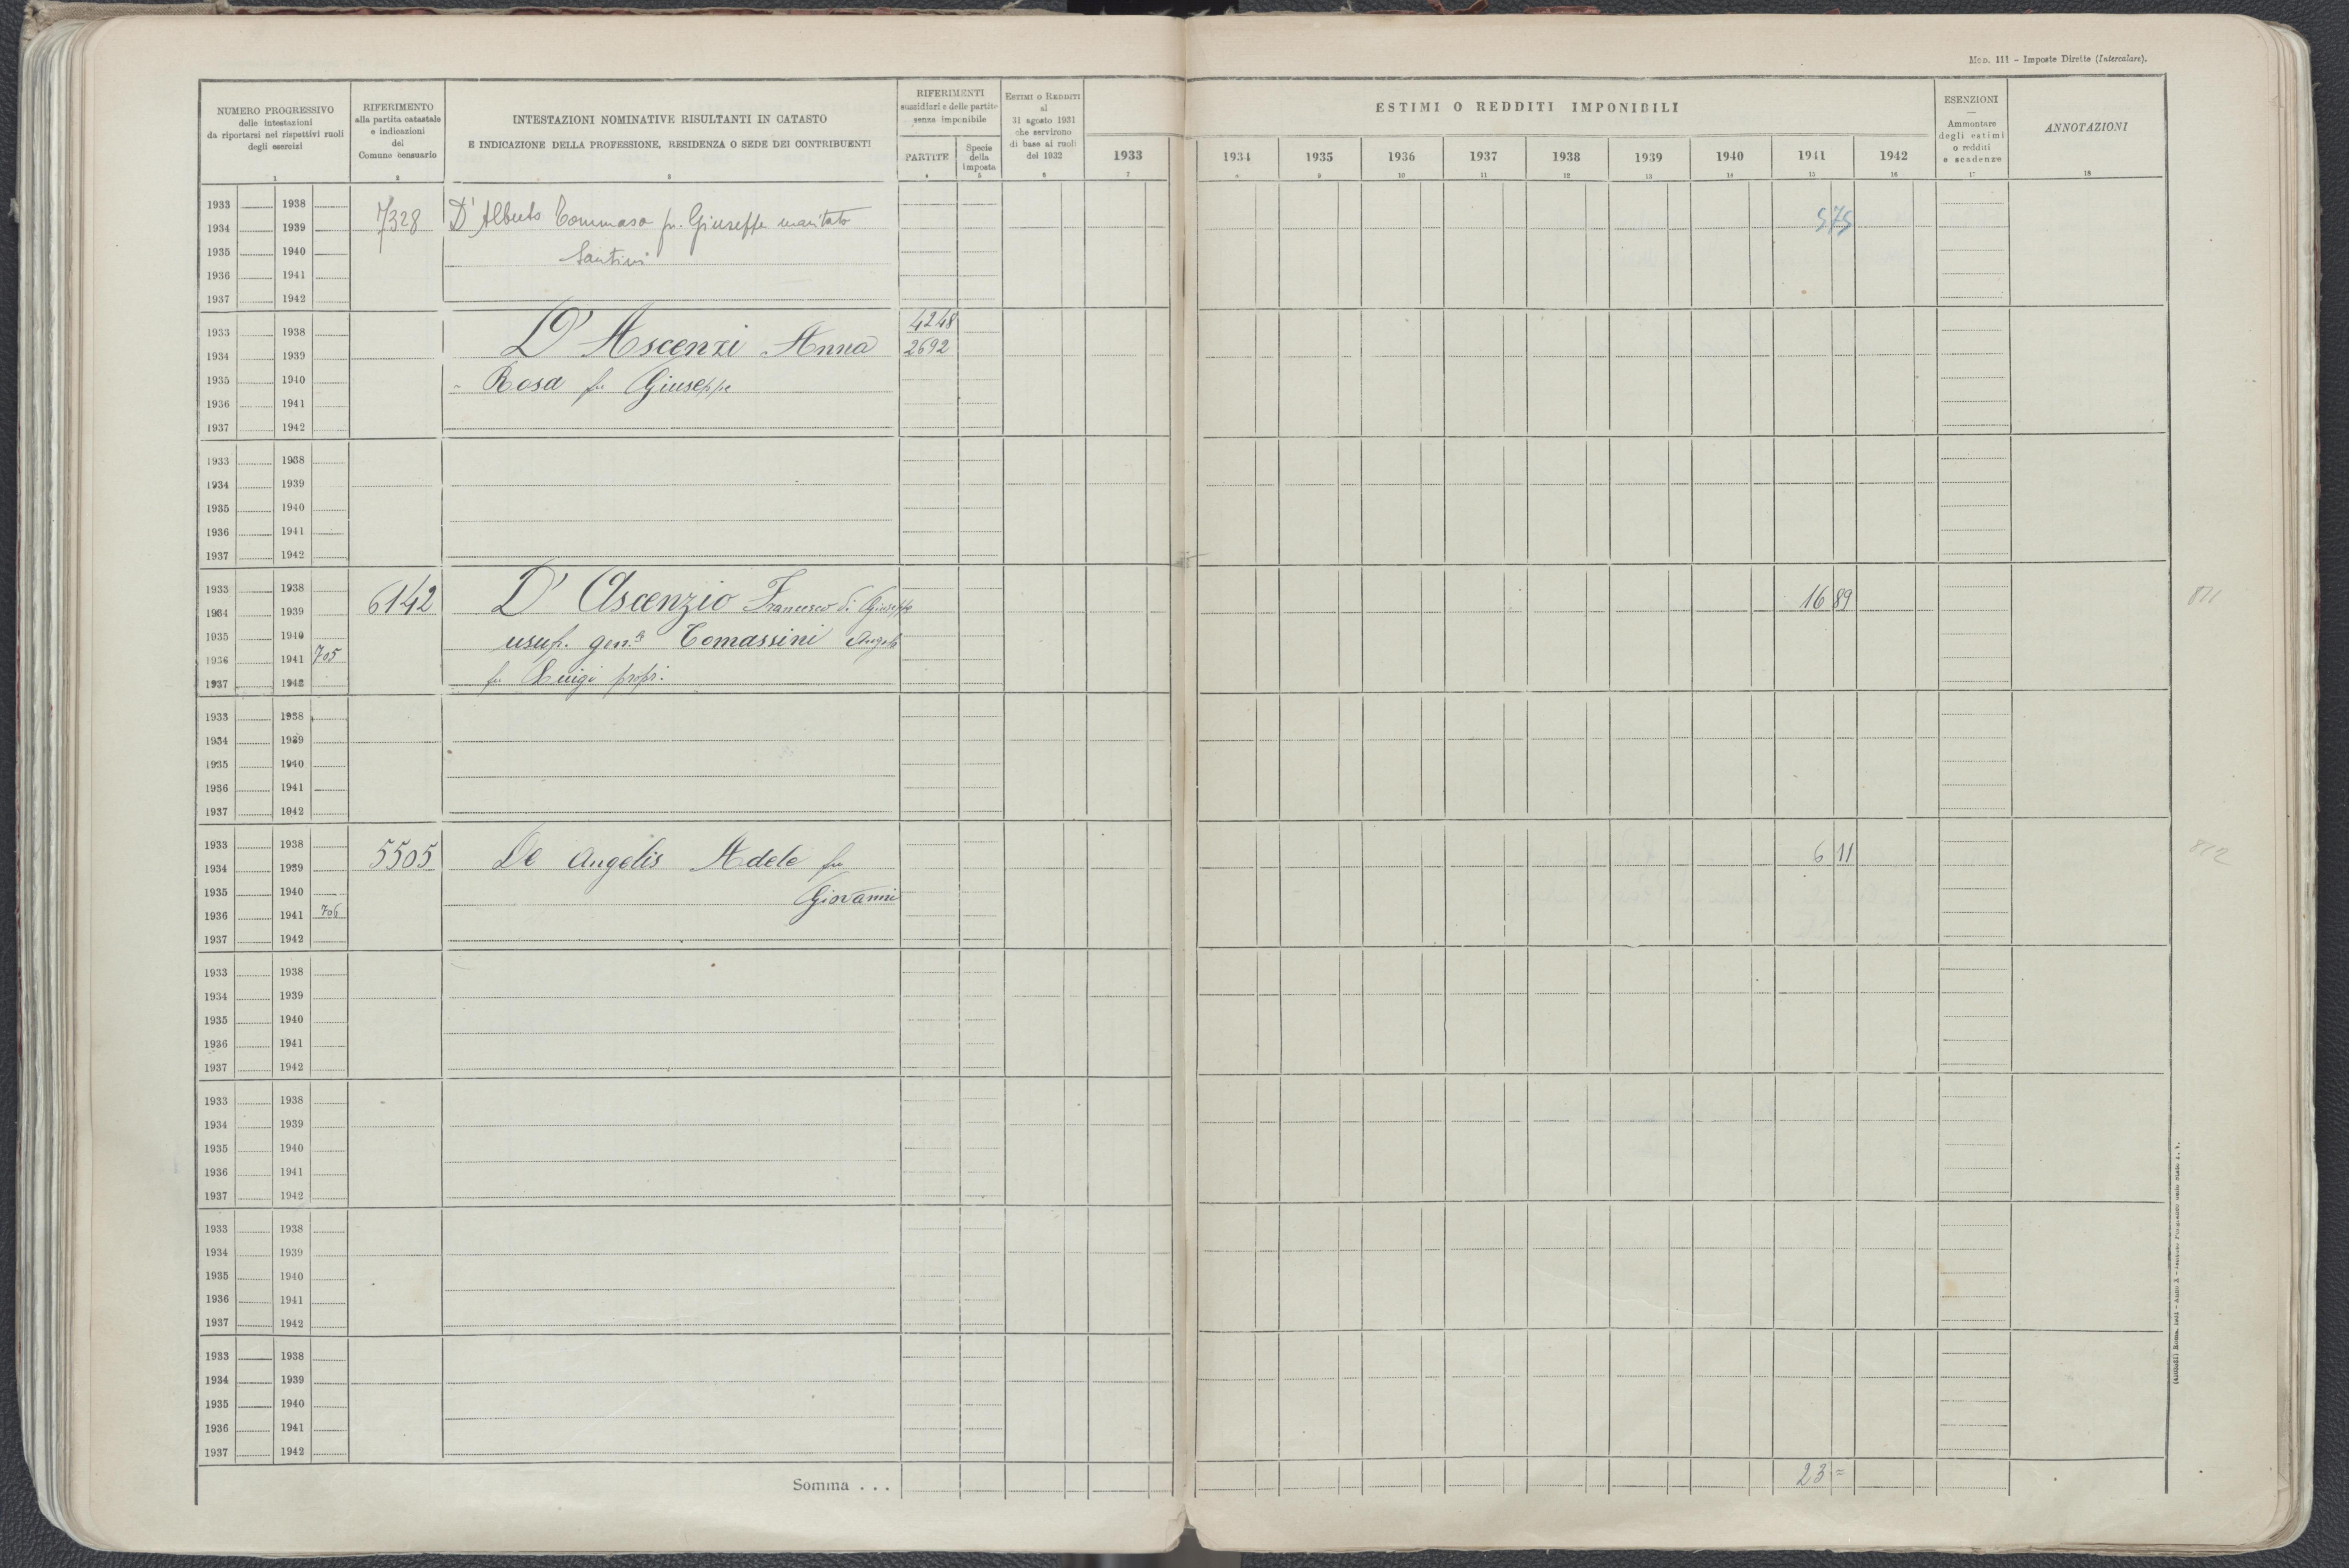 Mod. 111 - Imposte Dirette (Intercalare).
NUMERO PROGRESSIVO
delle intestazioni
da riportarsi nei rispettivi ruoli
degli esercizi
1
RIFERIMENTO
alla partita catastale
e indicazioni
del
Comune censuario
2
INTESTAZIONI NOMINATIVE RISULTANTI IN CATASTO
E INDICAZIONE DELLA PROFESSIONE, RESIDENZA O SEDE DEI CONTRIBUENTI
3
RIFERIMENTI
sussidiari e delle partite
senza imponibile
PARTITE
4
Specie
della
imposta
5
Estimi o Redditi
al
31 agosto 1931
che servirono
di base ai ruoli
del 1932
6
ESTIMI O REDDITI IMPONIBILI
1933 1934 1935 1936 1937 1938 1939 1940 1941 1942
7 8 9 10 11 12 13 14 15 16
ESENZIONI
Ammontare
degli estimi
o redditi
e scadenze
17
ANNOTAZIONI
18
1933 1938
1934 1939 7328 D'Alberto Tommaso fu Giuseppe maritato 575
1935 1940 Santini
1936 1941
1937 1942
4248
1933 1938
1934 1939 D'Ascenzi Anna 2692
1935 1940 Rosa fu Giuseppe
1936 1941
1937 1942
1933 1938
1934 1939
1935 1940
1936 1941
1937 1942
1933 1938
1934 1939 6142 D'Ascenzio Francesco di Giuseppe 16 89 811
1935 1940 usuf. gen. Tomassini Angela
1936 1941 705
1937 1942 fu Luigi propr.
1933 1938
1934 1939
1935 1940
1936 1941
1937 1942
1933 1938
1934 1939 5505 De Angelis Adele fu 6 11 812
1935 1940 Giovanni
1936 1941 706
1937 1942
1933 1938
1934 1939
1935 1940
1936 1941
1937 1942
1933 1938
1934 1939
1935 1940
1936 1941
1937 1942
1933 1938
1934 1939
1935 1940
1936 1941
1937 1942
1933 1938
1934 1939
1935 1940
1936 1941
1937 1942
Somma . . . 23 =